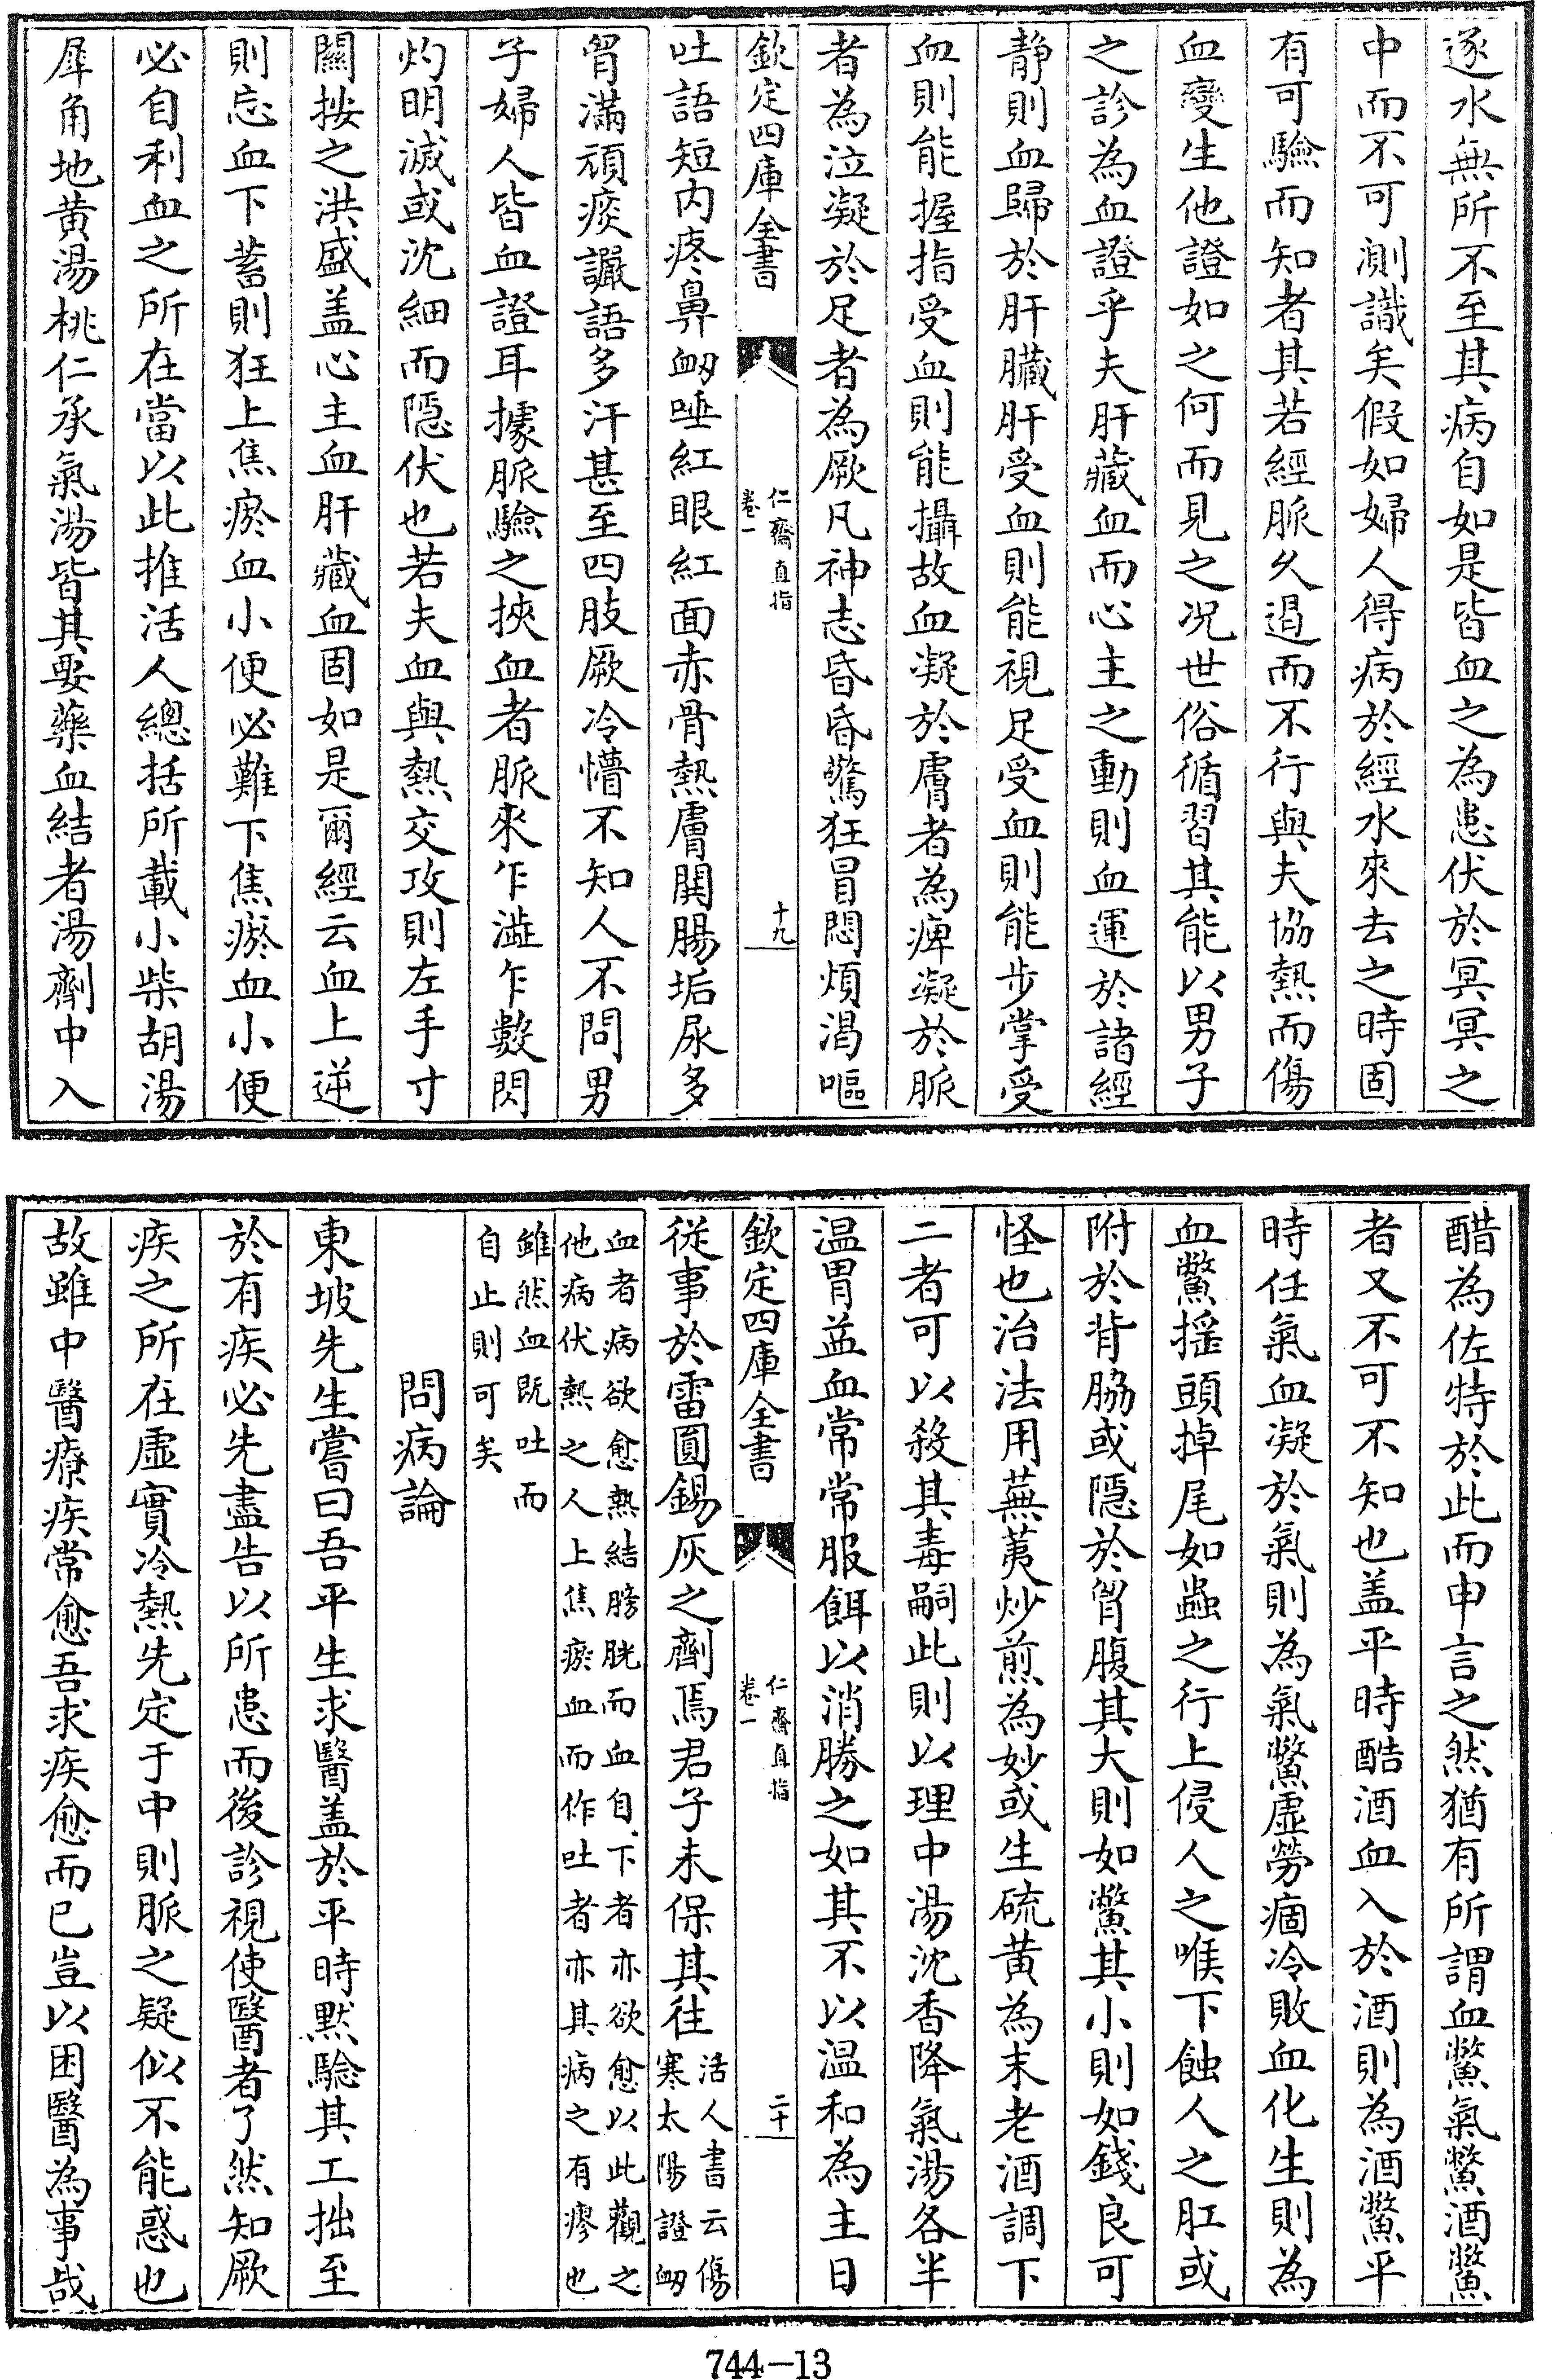 逐水無所不至其病自如是皆血之為患伏於冥冥之
中而不可測識矣假如婦人得病於經水來去之時固
有可驗而知者其若經脈久遏而不行與夫協熱而傷
血變生他證如之何而見之况世俗循習其能以男子
之診為血證乎夫肝藏血而心主之動則血運於諸經
静則血歸於肝臓肝受血則能視足受血則能步掌受
血則能握指受血則能攝故血凝於膚者為痺凝於脈
者為泣凝於足者為厥凡神志昏昏驚狂冒悶煩渴嘔
欽定四庫全書
仁齋直指
卷一
十九
吐語短内疼鼻衂唾紅眼紅面赤骨熱膚閧腸垢尿多
胷滿頑痰讝語多汗甚至四肢厥冷懵不知人不問男
子婦人皆血證耳據脈驗之挾血者脈來乍澁乍數閃
灼明滅或沈細而隱伏也若夫血與熱交攻則左手寸
關按之洪盛盖心主血肝藏血固如是爾經云血上逆
則忘血下蓄則狂上焦瘀血小便必難下焦瘀血小便
必自利血之所在當以此推活人總括所載小柴胡湯
犀角地黄湯桃仁承氣湯皆其要藥血結者湯劑中入
醋為佐特於此而申言之然猶有所謂血鱉氣鱉酒鱉
者又不可不知也盖平時酷酒血入於酒則為酒鱉平
時任氣血凝於氣則為氣鱉虛勞痼冷敗血化生則為
血鱉揺頭掉尾如蟲之行上侵人之喉下蝕人之肛或
附於背脇或隱於胷腹其大則如鱉其小則如錢良可
怪也治法用蕪荑炒煎為妙或生硫黄為末老酒調下
二者可以殺其毒嗣此則以理中湯沈香降氣湯各半
温胃益血常常服餌以消勝之如其不以温和為主日
欽定四庫全書
仁齋直指
卷一
二十
從事於雷圓錫灰之劑焉君子未保其往
活人書云傷
寒太陽證衂
血者病欲愈熱結膀胱而血自下者亦欲愈以此觀之
他病伏熱之人上焦瘀血而作吐者亦其病之有瘳也
雖然血既吐而
自止則可矣
問病論
東坡先生嘗曰吾平生求醫盖於平時黙驗其工拙至
於有疾必先盡告以所患而後診視使醫者了然知厥
疾之所在虛實冷熱先定于中則脈之疑似不能惑也
故雖中醫療疾常愈吾求疾愈而已豈以困醫為事哉
744-13